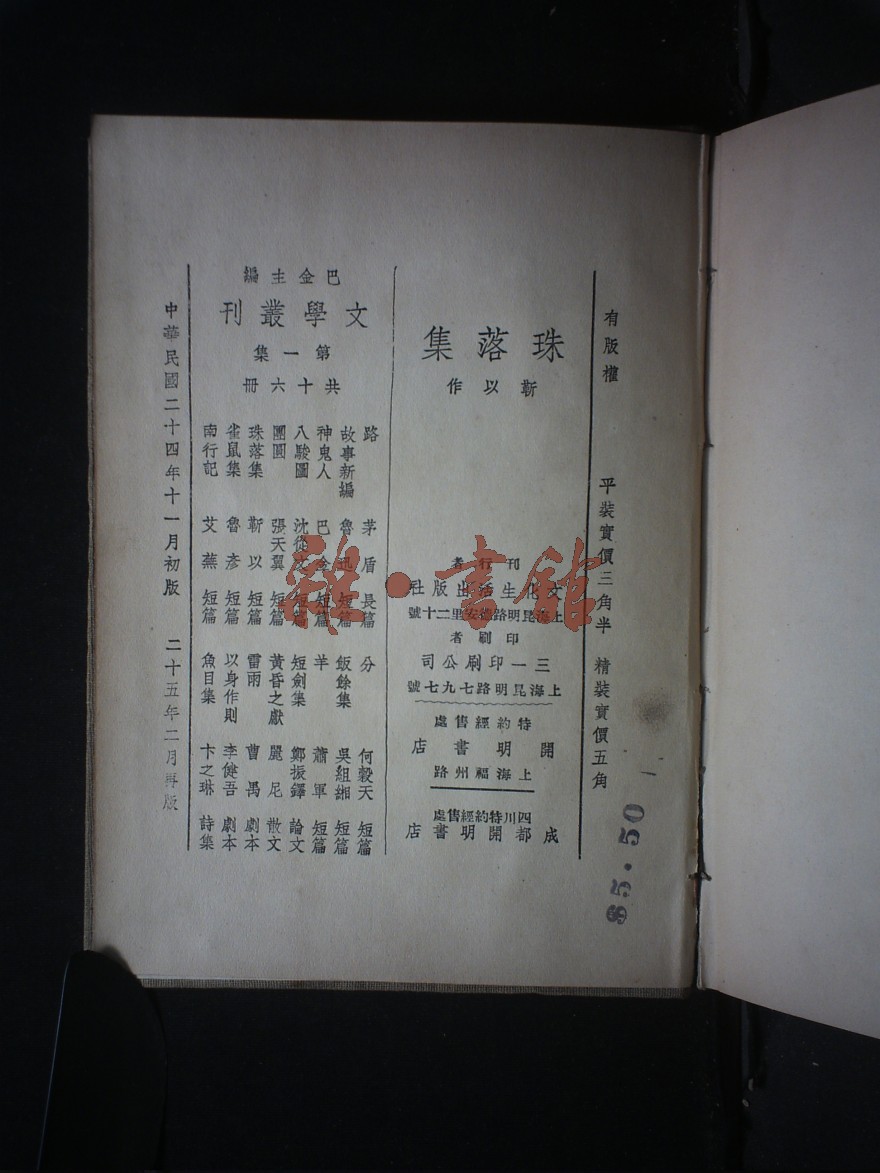 有版權 平裝實價三角半 精裝實價五角
$5.50
珠落集
靳以作
刊行者
文化生活出版社
上海昆明路德安里二十號
印刷者
三一印刷公司
上海昆明路七九七號
特約經售處
開明書店
上海福州路
四川特約經售處
成都開明書店
巴金主編
文學叢刊
第一集
共十六冊
路 茅盾 長篇
故事新編 魯迅 短篇
神鬼人 巴金 短篇
八駿圖 沈從文 短篇
團圓 張天翼 短篇
珠落集 靳以 短篇
雀鼠集 魯彥 短篇
南行記 艾蕪 短篇
分 何穀天 短篇
飯餘集 吳組緗 短篇
羊 蕭軍 短篇
短劍集 鄭振鐸 論文
黃昏之獻 麗尼 散文
雷雨 曹禺 劇本
以身作則 李健吾 劇本
魚目集 卞之琳 詩集
中華民國二十四年十一月初版 二十五年二月再版
雜·書館